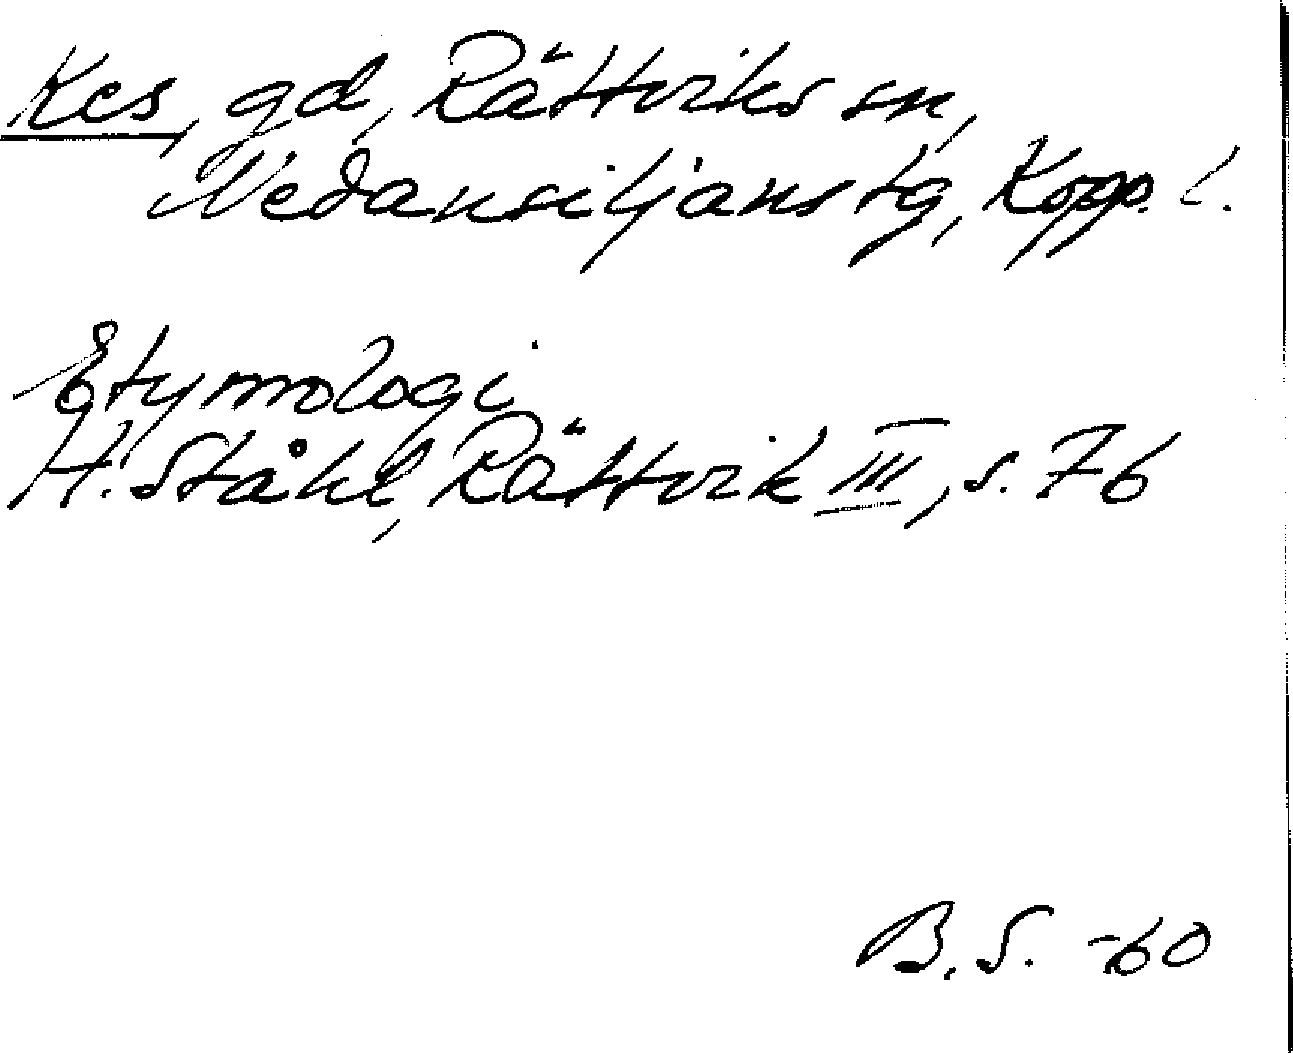 Kcs, gd, Rättviks sn,
Nedansiljans tg, Kopp. l.
Etymologi
H. Ståhl, Rättvik III, s. 76
B. S. -60